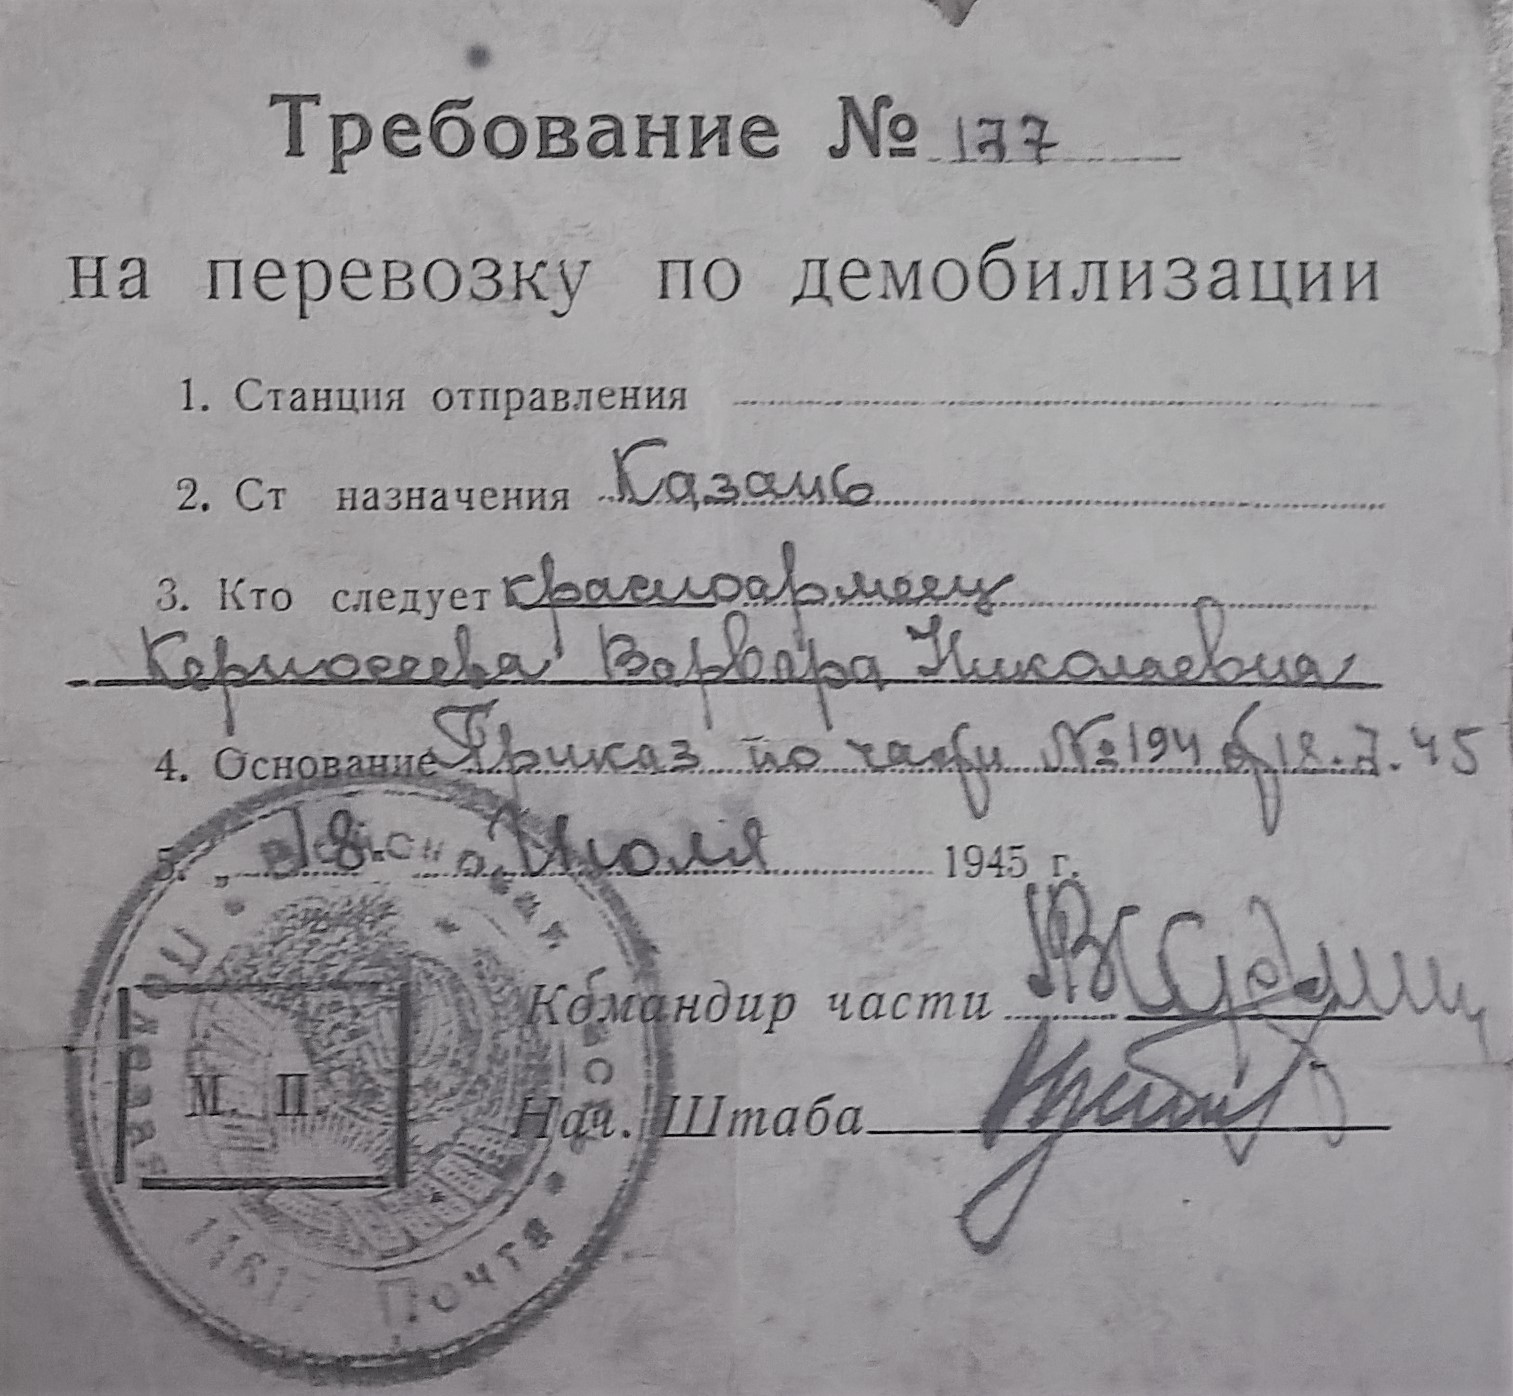 Требование № 177
на перевозку по демобилизации
1. Станция отправления
2. Ст назначения Казань
3. Кто следует красноармеец
Варвара Николаевна
4. Основание Приказ по части № 194 от 18.7.45
5. „18. Июля 1945 г.
Командир части
М. П.
Нач. Штаба
Полевая Почта
Войсковая часть